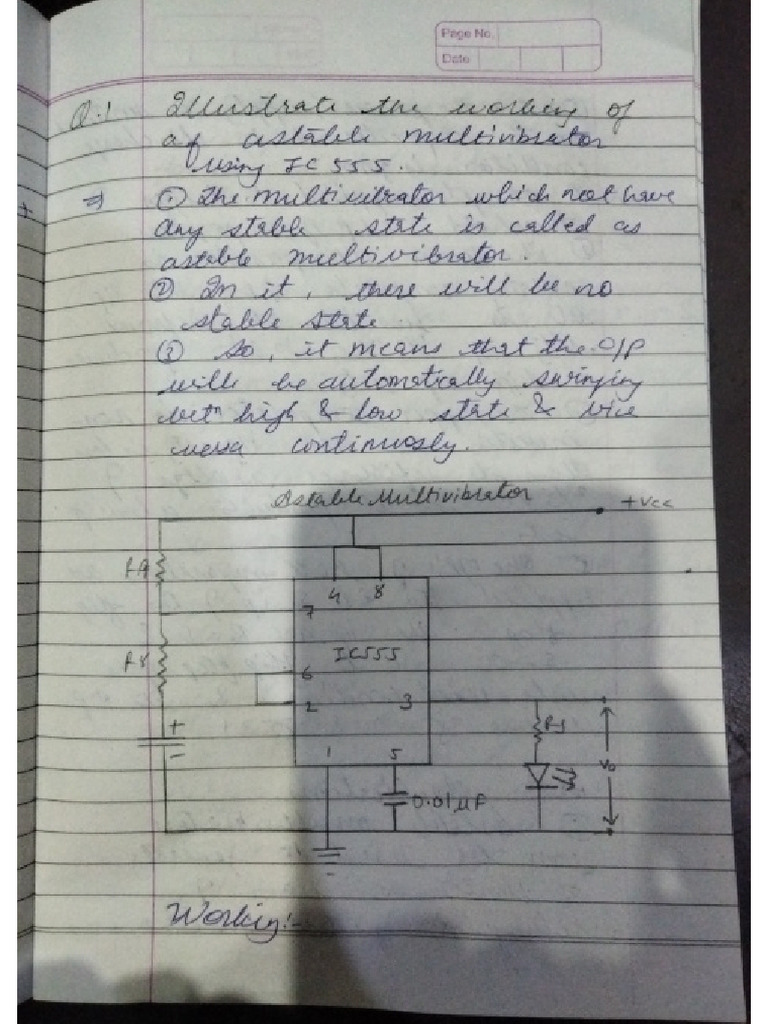 Page No.
Date
Q.1 Illustrate the working of
of astable multivibrator
using IC 555.
⇒ ① The multivibrator which not have
any stable state is called as
astable multivibrator.
② In it, there will be no
stable state.
③ So, it means that the O/P
will be automatically swinging
betn high & low state & vice
versa continuosly.
Astable Multivibrator
+Vcc
RA
4 8
7
IC555
6
2 3
+
-
1 5
0.01μF
Vo
Working:-